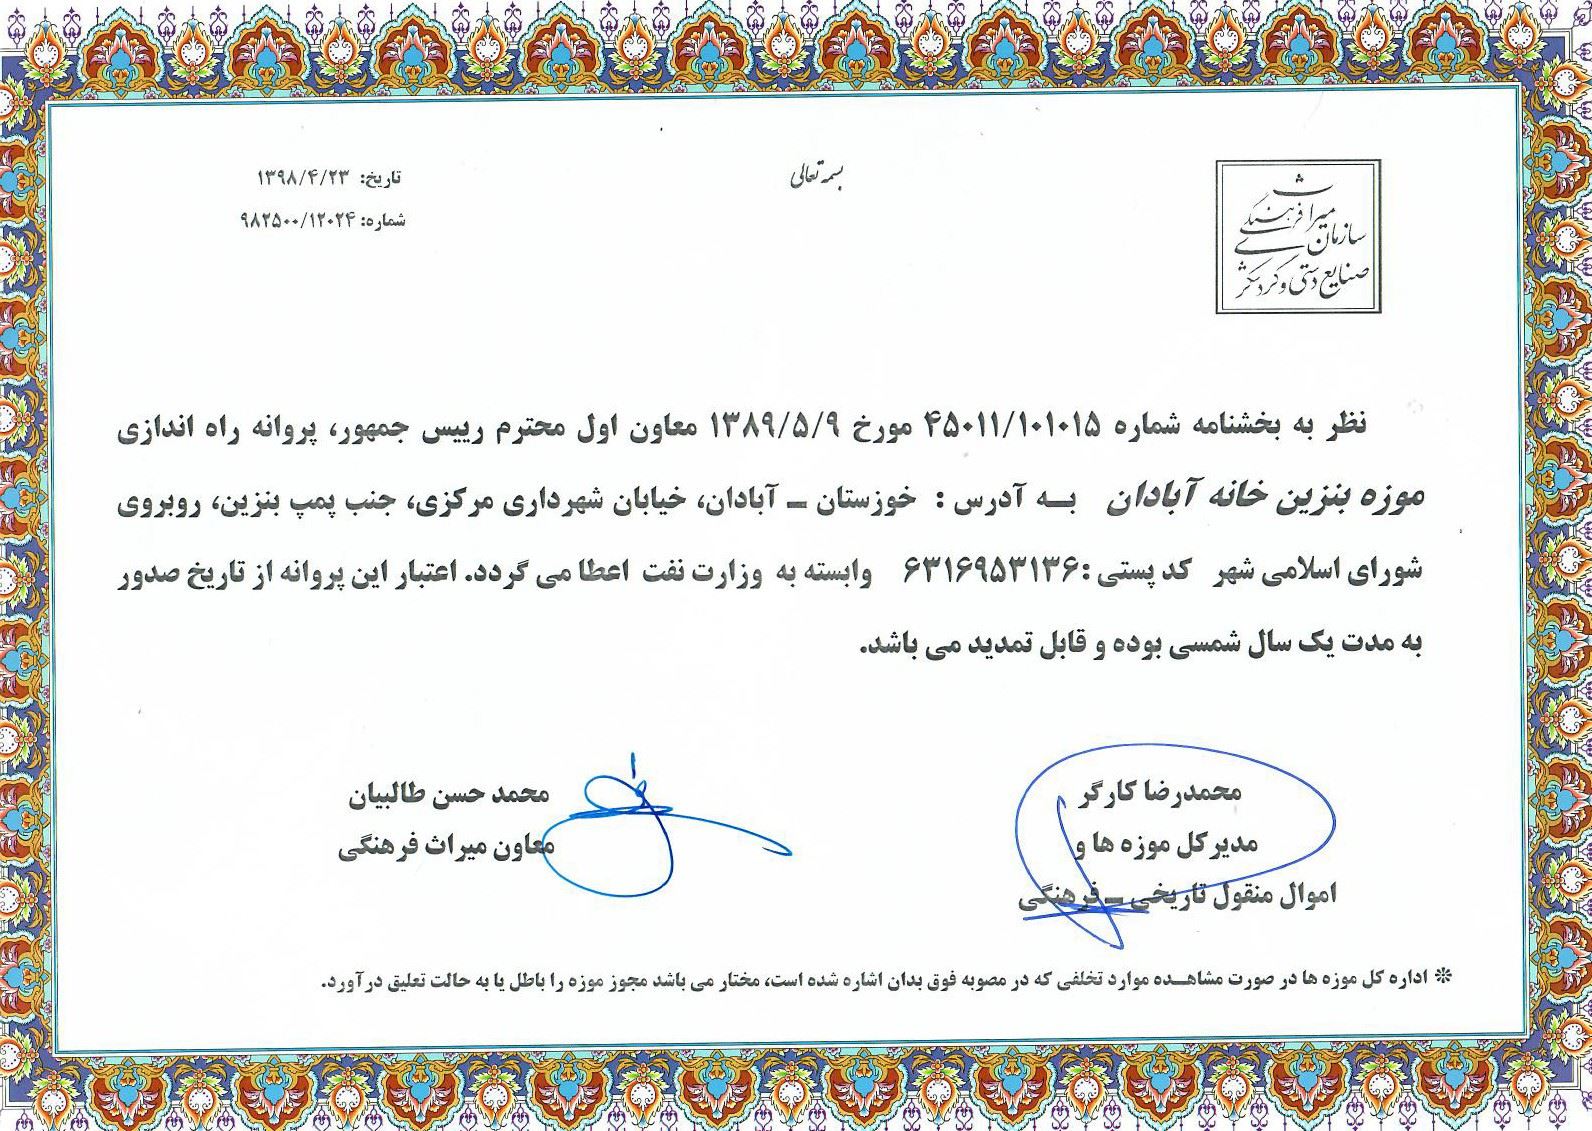 بسمه تعالی
تاریخ: ۱۳۹۸/۴/۲۳
شماره: ۹۸۲۵۰۰/۱۲۰۲۴
سازمان میراث فرهنگی
صنایع دستی و گردشگری
نظر به بخشنامه شماره ۴۵۰۱۱/۱۰۱۰۱۵ مورخ ۱۳۸۹/۵/۹ معاون اول محترم رییس جمهور، پروانه راه اندازی
موزه بنزین خانه آبادان به آدرس : خوزستان ـ آبادان، خیابان شهرداری مرکزی، جنب پمپ بنزین، روبروی
شورای اسلامی شهر کد پستی :۶۳۱۶۹۵۳۱۳۶ وابسته به وزارت نفت اعطا می گردد. اعتبار این پروانه از تاریخ صدور
به مدت یک سال شمسی بوده و قابل تمدید می باشد.
محمدرضا کارگر
مدیرکل موزه ها و
اموال منقول تاریخی ـ فرهنگی
محمد حسن طالبیان
معاون میراث فرهنگی
❊ اداره کل موزه ها در صورت مشاهده موارد تخلفی که در مصوبه فوق بدان اشاره شده است، مختار می باشد مجوز موزه را باطل یا به حالت تعلیق درآورد.